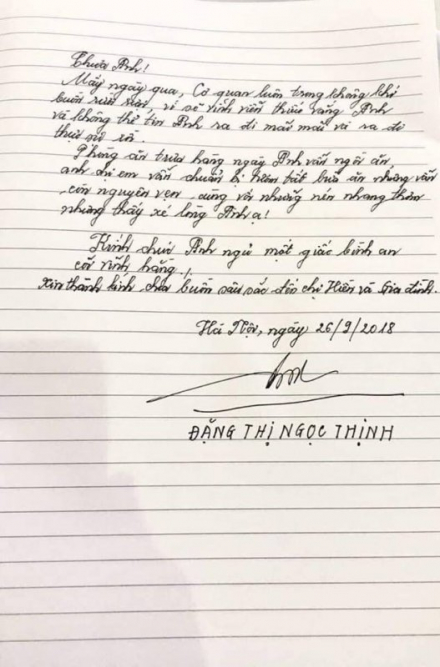 Thưa Anh!
Mấy ngày qua, Cơ quan luôn trong không khí
buồn rười rượi, vì sẽ vĩnh viễn thiếu vắng Anh
và không thể tin Anh ra đi mãi mãi và ra đi
thật sự rồi.
Phòng ăn trưa hàng ngày Anh vẫn ngồi ăn,
anh chị em vẫn chuẩn bị tươm tất bữa ăn nhưng vẫn
còn nguyên vẹn, cùng với những nén nhang thơm
nhưng thấy xé lòng Anh ạ!
Kính chúc Anh ngủ một giấc bình an
cõi vĩnh hằng!
Xin thành kính chia buồn sâu sắc đến chị Hiền và Gia đình.
Hà Nội, ngày 26/9/2018
ĐẶNG THỊ NGỌC THỊNH